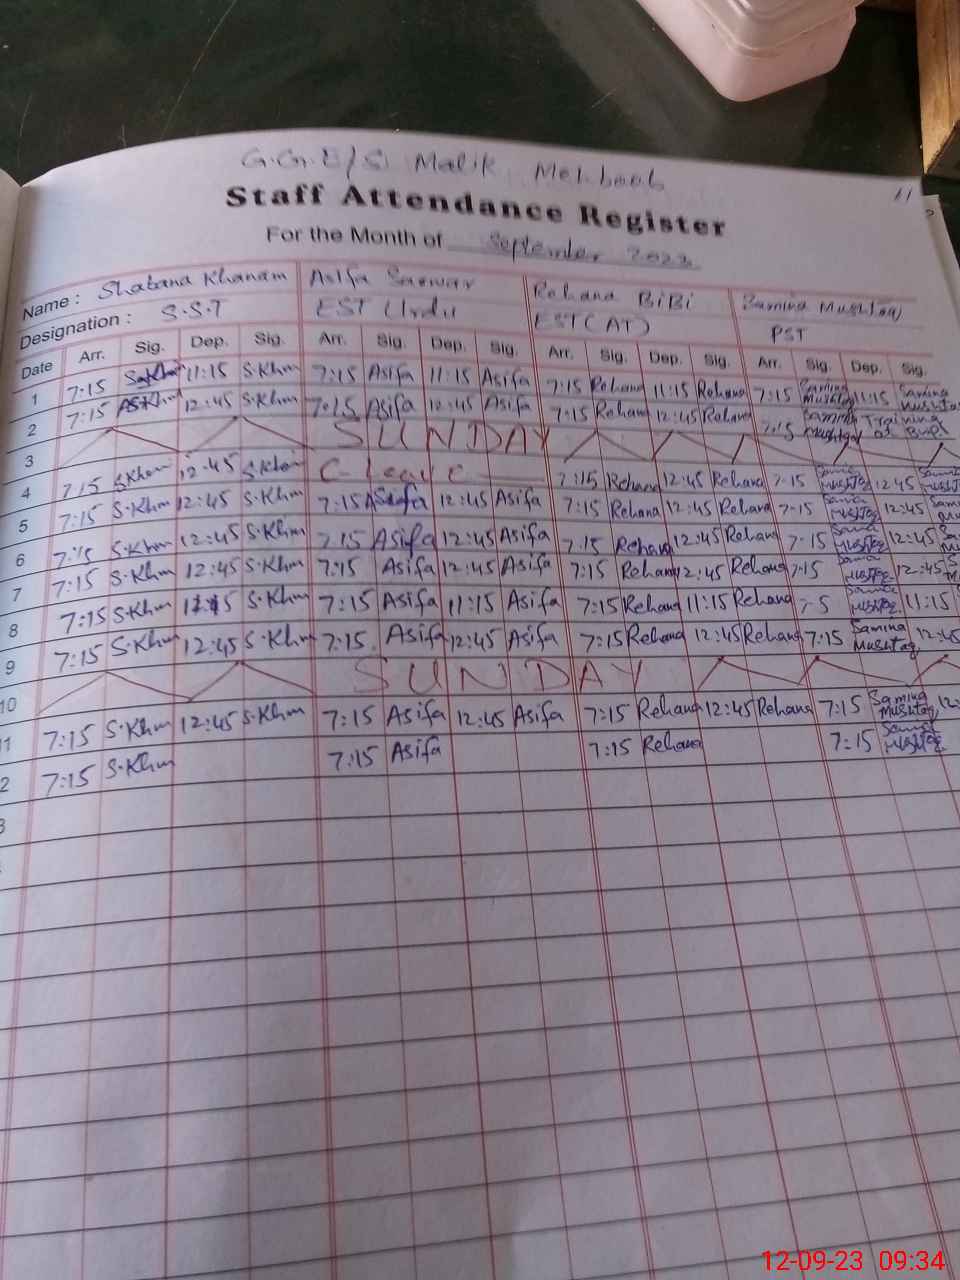 G.G.E/S Malik Mehboob
11
Staff Attendance Register
For the Month of September 2023
Name : Shabana Khanam Asifa Sarwar Rehana BiBi Samina Mushtaq
Designation : S.S.T EST Urdu EST(AT) PST
Date Arr. Sig. Dep. Sig. Arr. Sig. Dep. Sig. Arr. Sig. Dep. Sig. Arr. Sig. Dep. Sig.
1 7:15 S.Khm 11:15 S.Khm 7:15 Asifa 11:15 Asifa 7:15 Rehana 11:15 Rehana 7:15 Samina Mushtaq 11:15 Samina Mushtaq
2 7:15 S.Khm 12:45 S.Khm 7:15 Asifa 12:45 Asifa 7:15 Rehana 12:45 Rehana 7:15 Samina Mushtaq Training at
3 SUNDAY
4 7:15 S.Khm 12:45 S.Khm C-Leave 7:15 Rehana 12:45 Rehana 7-15 Samina Mushtaq 12:45
5 7:15 S.Khm 12:45 S.Khm 7:15 Asifa 12:45 Asifa 7:15 Rehana 12:45 Rehana 7-15 Samina Mushtaq 12:45
6 7:15 S.Khm 12:45 S.Khm 7:15 Asifa 12:45 Asifa 7:15 Rehana 12:45 Rehana 7-15 Samina Mushtaq 12:45
7 7:15 S.Khm 12:45 S.Khm 7:15 Asifa 12:45 Asifa 7:15 Rehana 12:45 Rehana 7-15 Mushtaq 12:45
8 7:15 S.Khm 11:15 S.Khm 7:15 Asifa 11:15 Asifa 7:15 Rehana 11:15 Rehana Samina Mushtaq 11:15
9 7:15 S.Khm 12:45 S.Khm 7:15 Asifa 12:45 Asifa 7:15 Rehana 12:45 Rehana 7:15 Samina Mushtaq 12:45
10 SUNDAY
11 7:15 S.Khm 12:45 S.Khm 7:15 Asifa 12:45 Asifa 7:15 Rehana 12:45 Rehana 7:15 Samina Mushtaq 12:
2 7:15 S.Khm 7:15 Asifa 7:15 Rehana 7:15 Samina Mushtaq
3
12-09-23 09:34